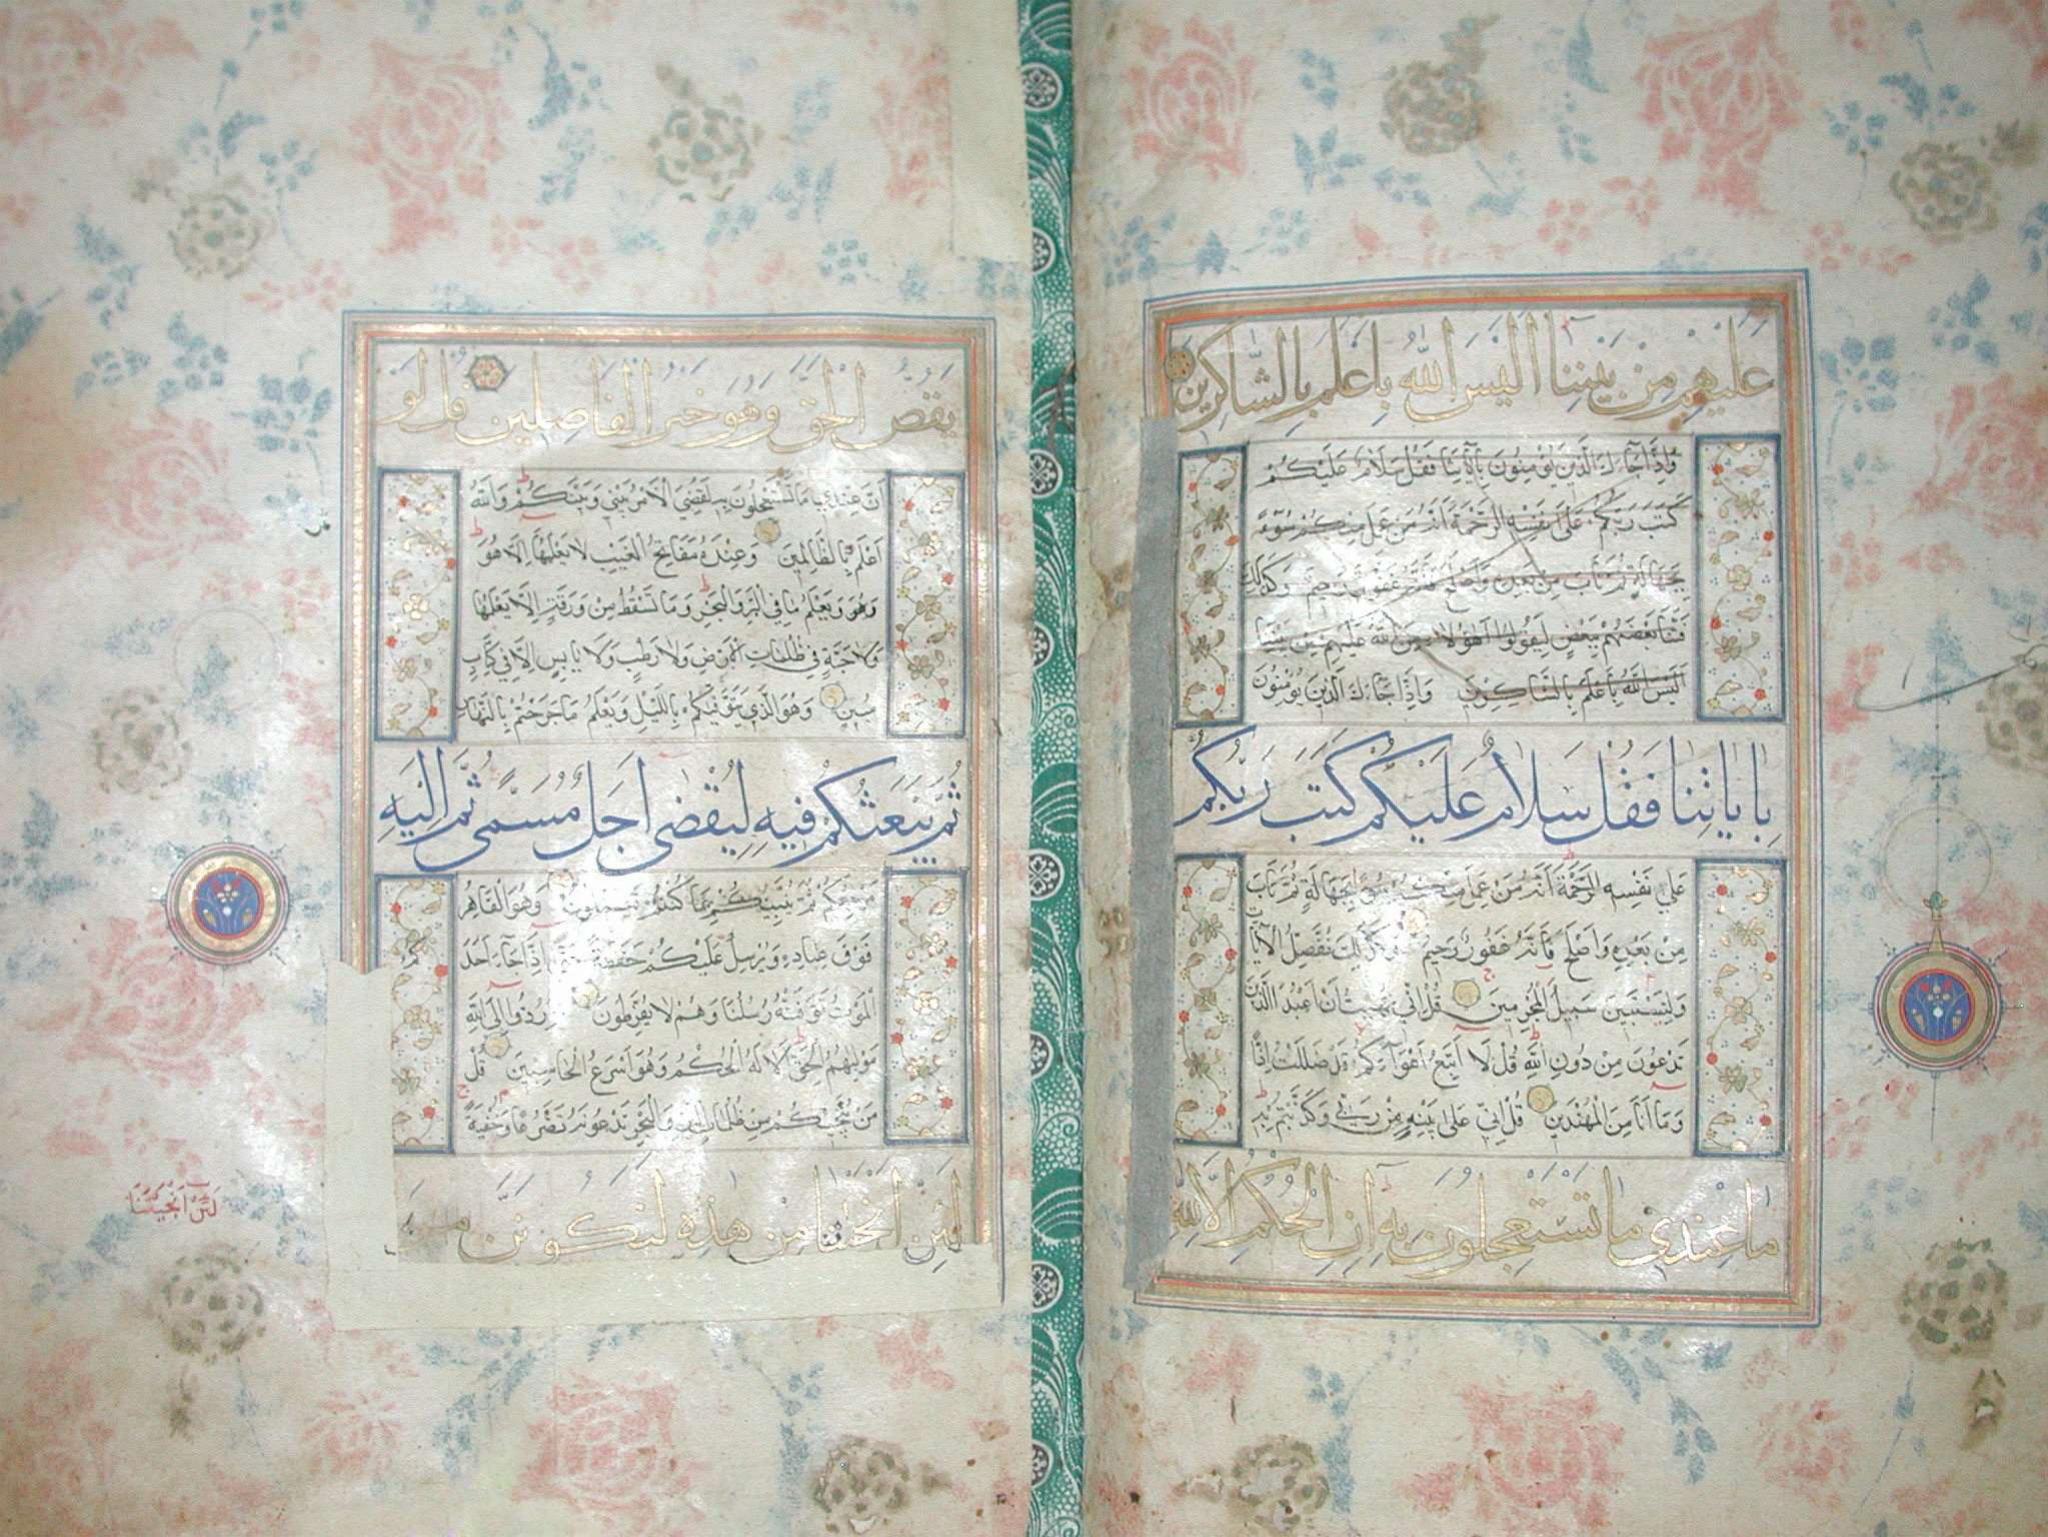 عليهم من بيننا اليس الله باعلم بالشاكرين
واذا جاءك الذين يؤمنون بآياتنا فقل سلام عليكم
كتب ربكم على نفسه الرحمة انه من عمل منكم سوءا
بجهالة ثم تاب من بعده واصلح فانه غفور رحيم وكذلك
فتنا بعضهم ببعض ليقولوا اهؤلاء من الله عليهم من بيننا
اليس الله باعلم بالشاكرين واذا جاءك الذين يؤمنون
باياتنا فقل سلام عليكم كتب ربكم
على نفسه الرحمة انه من عمل منكم سوءا بجهالة ثم تاب
من بعده واصلح فانه غفور رحيم وكذلك نفصل الآيات
ولتستبين سبيل المجرمين قل اني نهيت ان اعبد الذين
تدعون من دون الله قل لا اتبع اهواءكم قد ضللت اذا
وما انا من المهتدين قل اني على بينة من ربي وكذبتم به
ما عندي ما تستعجلون به ان الحكم الا لله
يقص الحق وهو خير الفاصلين قل لو
ان عندي ما تستعجلون به لقضي الامر بيني وبينكم والله
اعلم بالظالمين وعنده مفاتح الغيب لا يعلمها الا هو
ويعلم ما في البر والبحر وما تسقط من ورقة الا يعلمها
ولا حبة في ظلمات الارض ولا رطب ولا يابس الا في كتاب
مبين وهو الذي يتوفيكم بالليل ويعلم ما جرحتم بالنهار
ثم يبعثكم فيه ليقضى اجل مسمى ثم اليه
مرجعكم ثم ينبئكم بما كنتم تعملون وهو القاهر
فوق عباده ويرسل عليكم حفظة حتى اذا جاء احدكم
الموت توفته رسلنا وهم لا يفرطون ثم ردوا الى الله
موليهم الحق الا له الحكم وهو اسرع الحاسبين قل
من ينجيكم من ظلمات البر والبحر تدعونه تضرعا وخفية
لئن انجيتنا من هذه لنكونن من
لئن انجيتنا